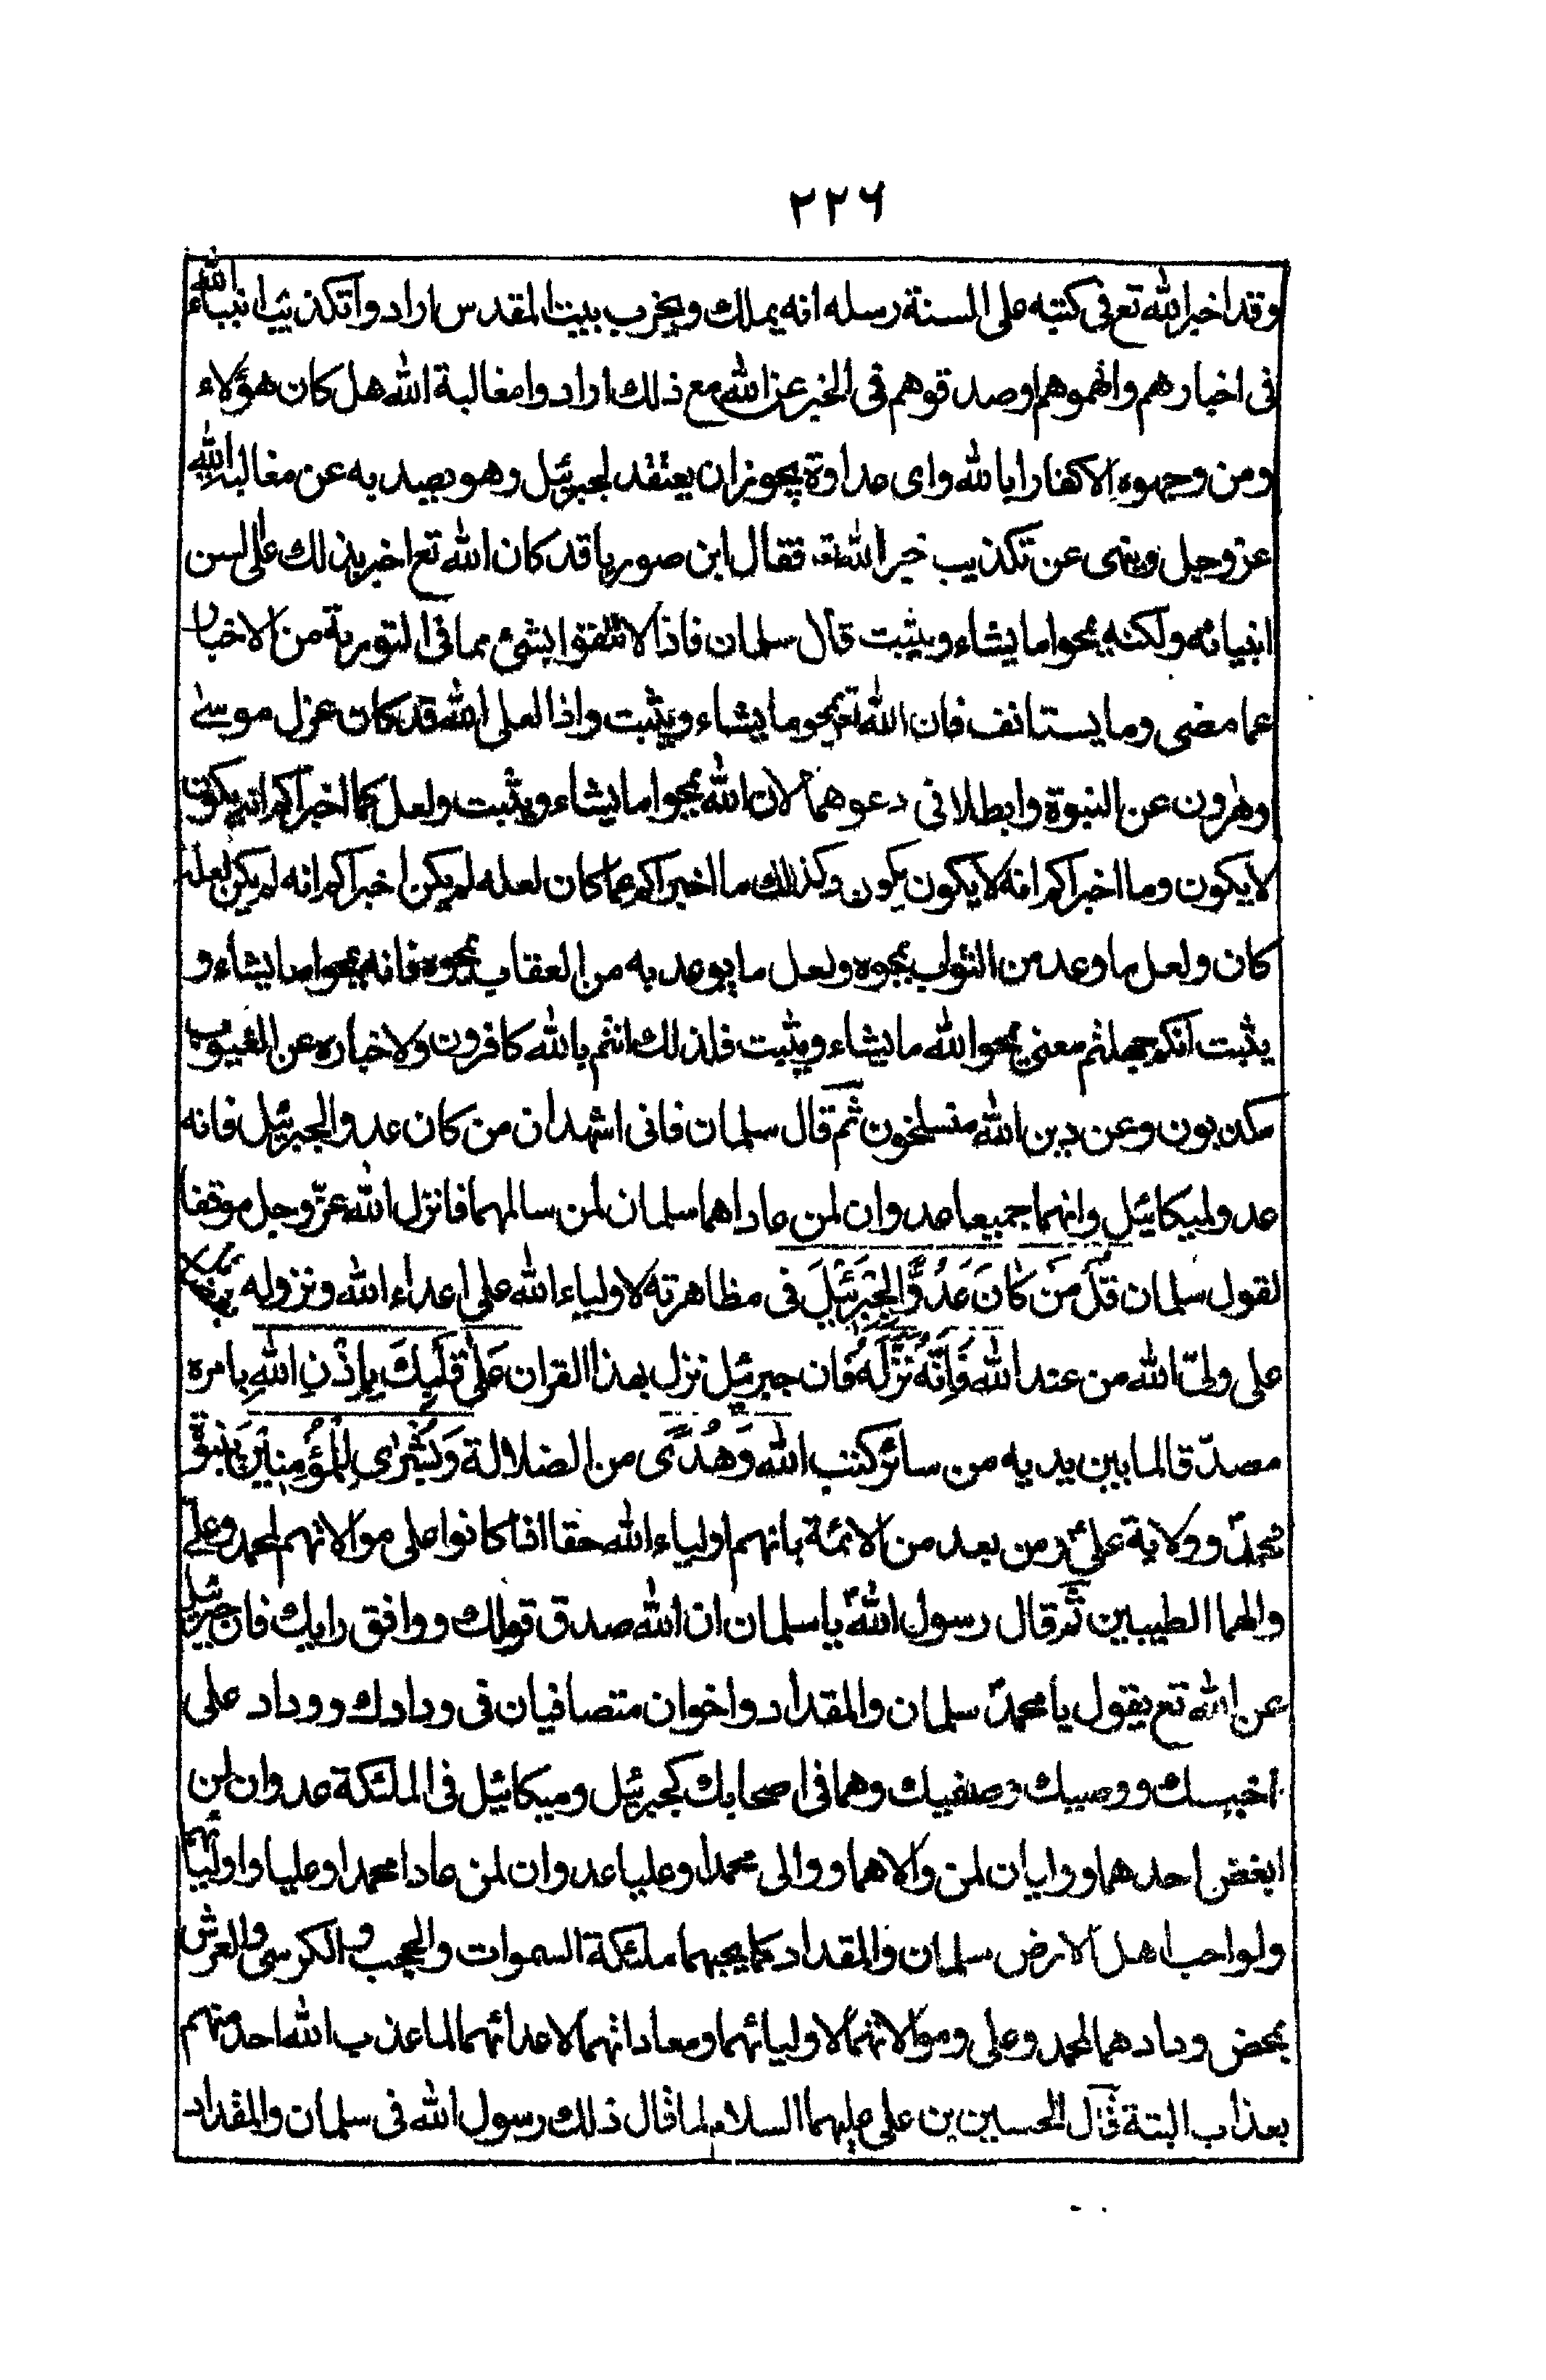 ٢٢٦
وقد اخبر الله تع فى كتبه على السنة رسله انه يملك ويخرب بيت المقدس ارادوا تكذيب انبياء الله
فى اخبارهم واتهموهم اوصدقوهم فى الخبر عن الله مع ذلك ارادوا مغالبة الله هل كان هؤلاء
ومن وجهوه الا كفارا بالله واى عداوة يجوز ان يعتقد لجبرئيل وهو يصد به عن مغالبة الله
عز وجل وينهى عن تكذيب خبر الله تع فقال ابن صوريا قد كان الله تع اخبر بذلك على السن
انبيائه ولكنه يمحوا ما يشاء ويثبت قال سلمان فاذا لا تثقوا بشئ مما فى التورية من الاخبار
عما مضى وما يستانف فان الله تع يمحو ما يشاء ويثبت واذا لعل الله قد كان عزل موسى
وهرون عن النبوة وابطلا فى دعوهما لان الله يمحوا ما يشاء ويثبت ولعل كما اخبراكم انه يكون
لا يكون وما اخبراكم انه لا يكون يكون وكذلك ما اخبراكم عما كان لعله لم يكن اخبراكم انه لم يكن لعله
كان ولعل ما وعد من الثواب يمحوه ولعل ما يوعد به من العقاب يمحوه فانه يمحوا ما يشاء و
يثبت انكم جهلتم معنى يمحو الله ما يشاء ويثبت فلذلك انتم بالله كافرون ولاخباره عن الغيوب
مكذبون وعن دين الله منسلخون ثم قال سلمان فانى اشهد ان من كان عدوا لجبرئيل فانه
عدو لميكائيل وانهما جميعا عدوان لمن عاداهما سلمان لمن سالمهما فانزل الله عز وجل موفقا
لقول سلمان قُلْ مَنْ كَانَ عَدُوًّا لِجِبْرَئِيلَ فى مظاهرته لاولياء الله على اعداء الله ونزوله
على ولىّ الله من عند الله فَاِنَّهُ نَزَّلَهُ فان جبرئيل نزل بهذا القران عَلٰى قَلْبِكَ بِاِذْنِ اللهِ بامره
مصدّقا لما بين يديه من سائر كتب الله وَهُدًى من الضلالة وَبُشْرٰى لِلْمُؤْمِنِيْنَ بنبوة
محمدؐ وولاية علىؑ ومن بعد من الائمة بانهم اولياء الله حقا اذا كانوا على موالاتهم لمحمد وعلى
والهما الطيبين ثم قال رسول اللهؐ يا سلمان ان الله صدق قولك ووافق رايك فان جبرئيل
عن الله تع يقول يا محمدؐ سلمان والمقداد واخوان متصافيان فى ودادك ووداد على
اخيك ووصيك وصفيك وهما فى اصحابك كجبرئيل وميكائيل فى الملئكة عدوان لمن
ابغض احدهما ووليان لمن والاهما ووالى محمدا وعليا عدوان لمن عادا محمدا وعليا واوليائهم
ولو احب اهل الارض سلمان والمقداد كما يحبهما ملئكة السموات والحجب والكرسى والعرش
بمحض ودادهما لمحمد وعلى وموالاتهما لاوليائهما ومعاداتهما لاعدائهما لما عذب الله احد منهم
بعذاب البتة قال الحسين بن على عليهما السلام لما قال ذلك رسول الله فى سلمان والمقداد